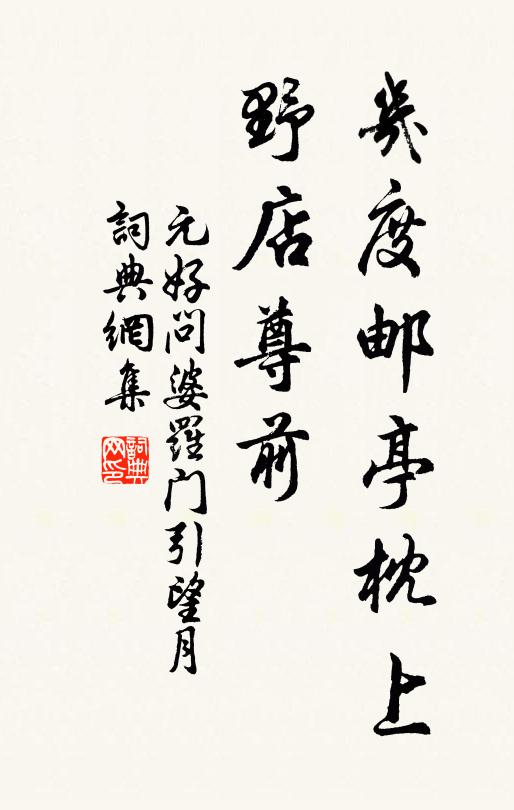 幾度邮亭枕上
野店尊前
元好問婆羅門引望月
詞典網集
詞典網印